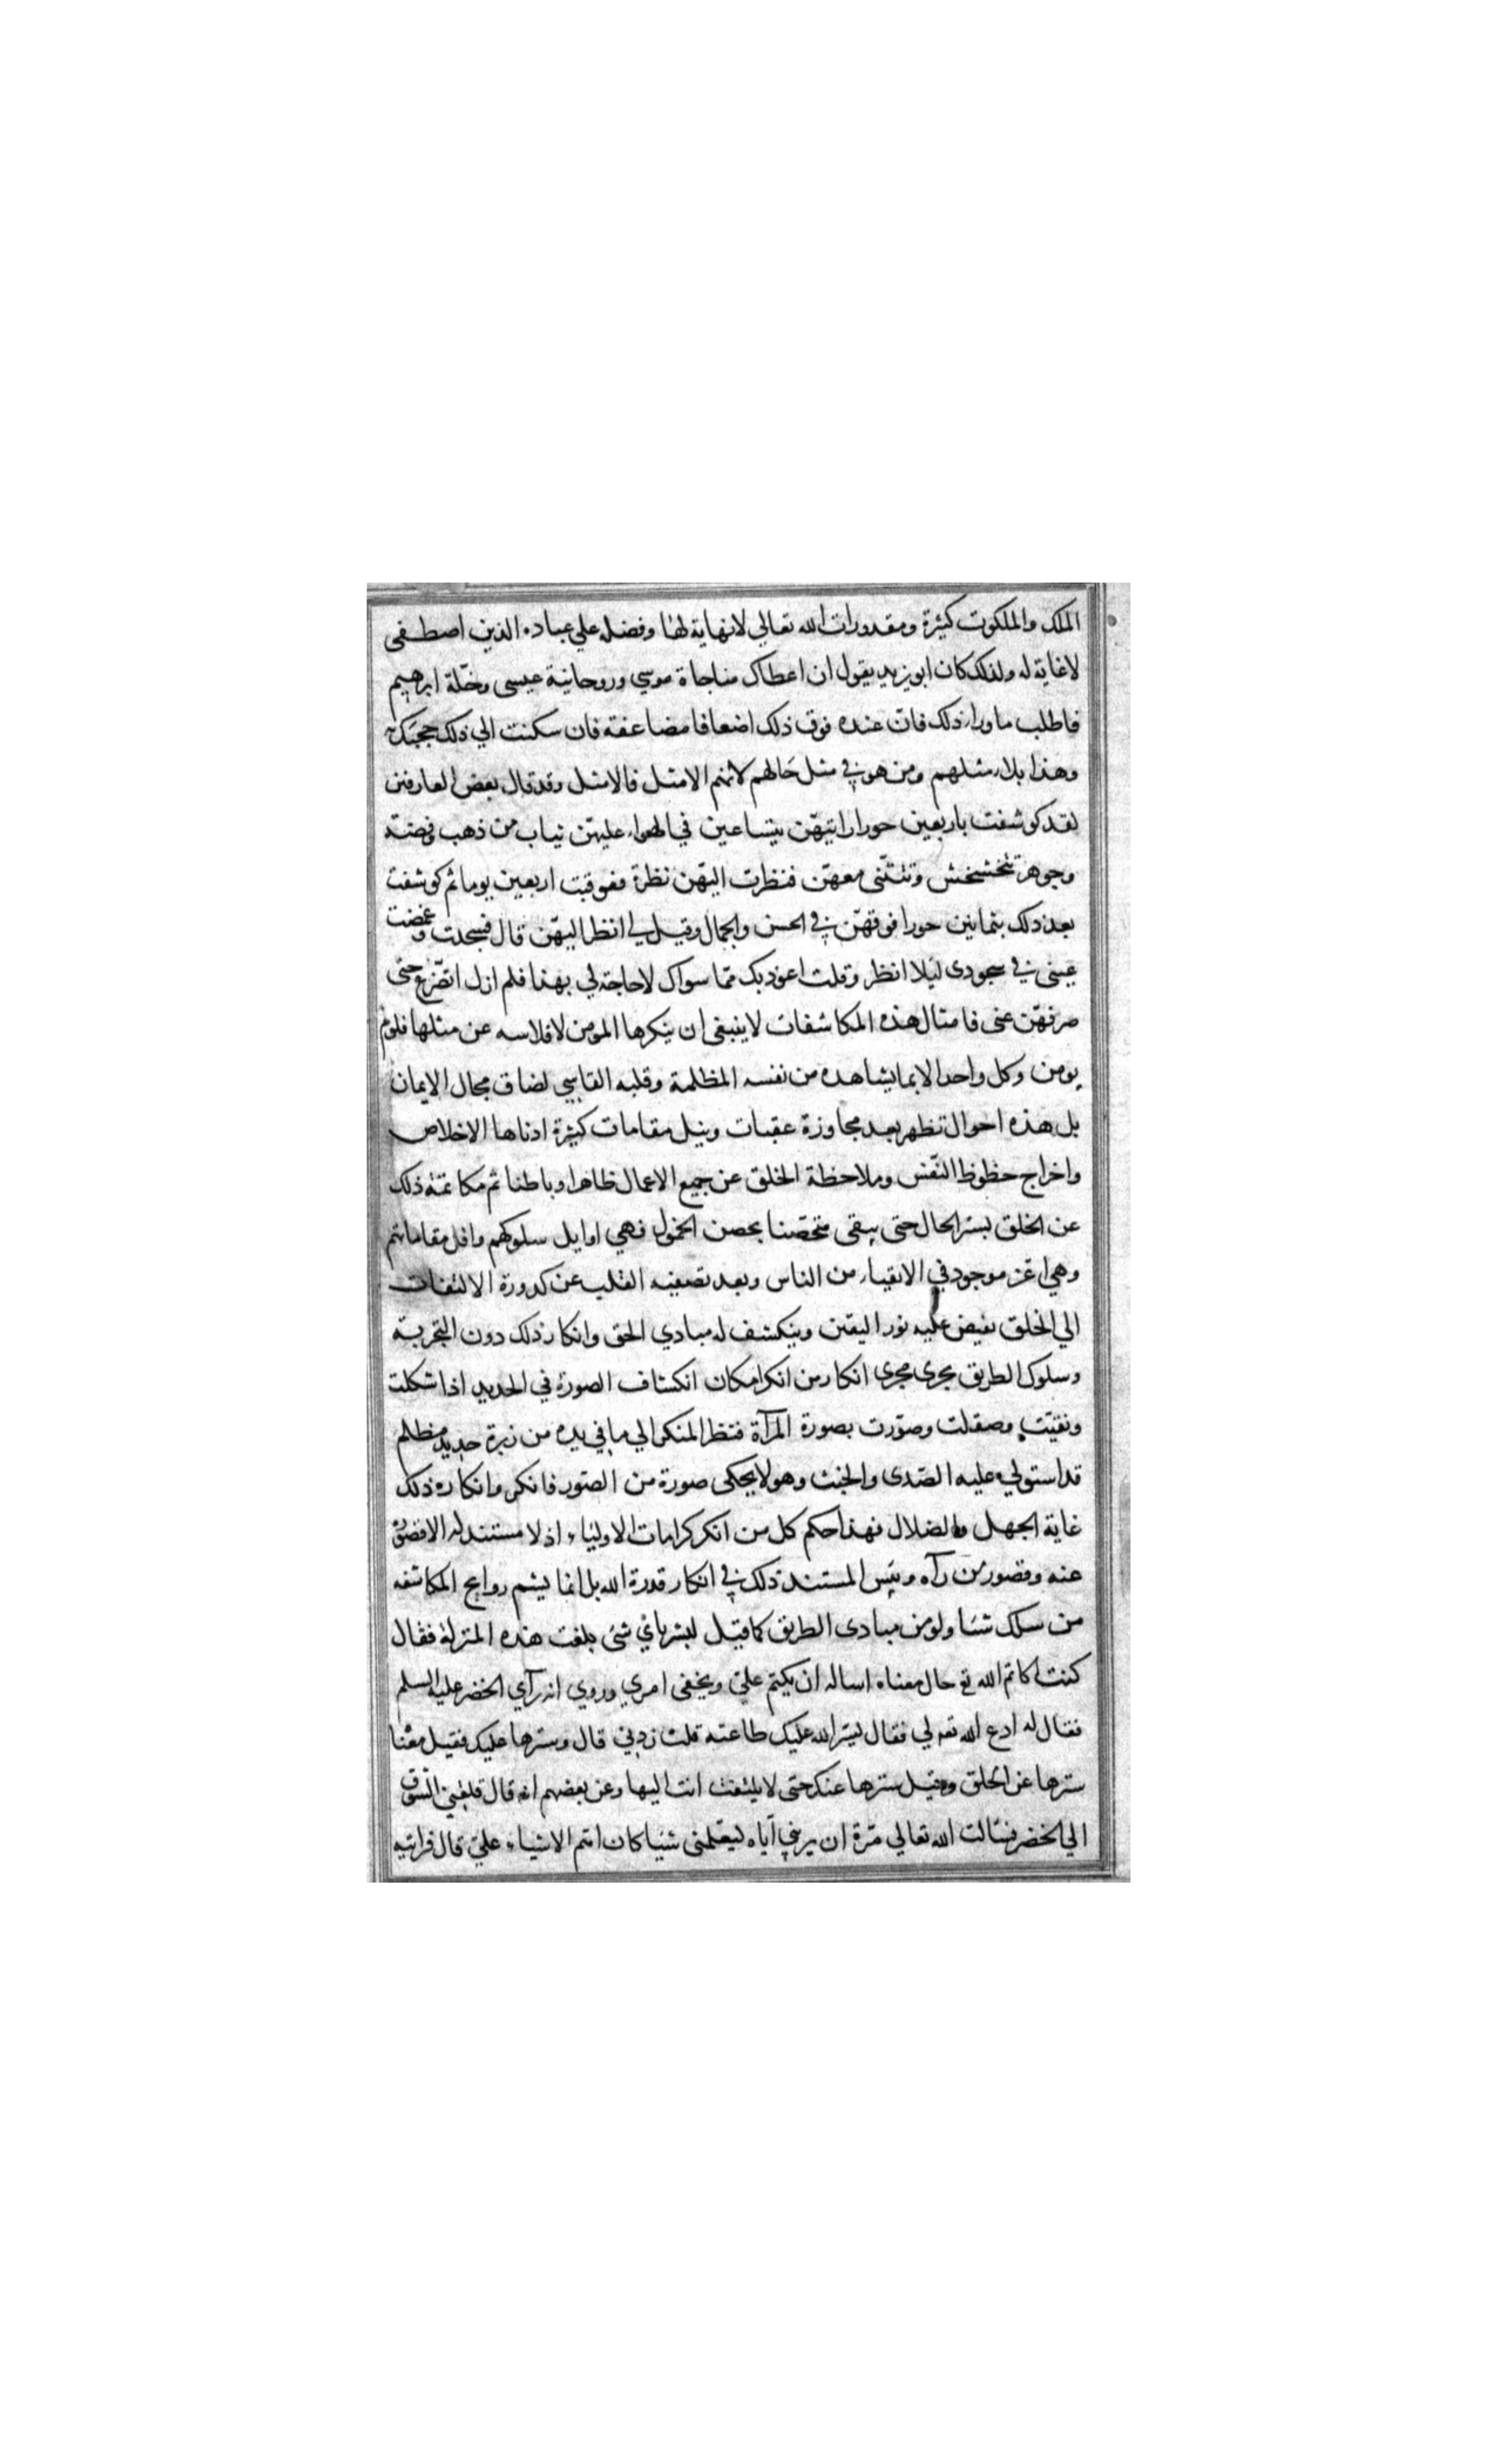 الملك والملكوت كثيرة ومقدورات الله تعالي لانهاية لها وفضله علي عباده الذين اصطفى
لاغاية له ولذلك كان ابويزيد يقول ان اعطاك مناجاة موسي وروحانية عيسى وخلّة ابرهيم
فاطلب ماوراء ذلك فانّ عنده فوق ذلك اضعافا مضاعفة فان سكنت الي ذلك حجبك
وهذا بلاء مثلهم ومن هو في مثل حالهم لانهم الامثل فالامثل وقد قال بعض العارفين
لقد كوشفت باربعين حورا رايتهّن يتساعين في الهواء عليهّن ثياب من ذهب وفضة
وجوهر تتخشخش وتتثنّى معهّن فنظرت اليهّن نظرة فعوقبت اربعين يوما ثم كوشفت
بعد ذلك بثمانين حورا فوقهّن في الحسن والجمال وقيل لي انظر اليهّن قال فسجدت وغمضت
عينى في سجودى ليلا انظر وقلت اعوذ بك ممّا سواك لاحاجة لي بهذا فلم ازل اتضّرع حتى
صرفهّن عنى فامثال هذه المكاشفات لاينبغى ان ينكرها المومن لافلاسه عن مثلها فلولم
يومن وكل واحد الابما يشاهده من نفسه المظلمة وقلبه القاسي لضاق مجال الايمان
بل هذه احوال تظهر بعد مجاوزة عقبات ونيل مقامات كثيرة ادناها الاخلاص
واخراج حظوظ النّفس وملاحظة الخلق عن جميع الاعمال ظاهرا وباطنا ثم مكاتمة ذلك
عن الخلق بستر الحال حتى يبقى متحصّنا بحصن الخمول فهي اوايل سلوكهم واقل مقاماتهم
وهي اعّز موجود في الاتقياء من الناس وبعد تصفيه القلب عن كدورة الالتفات
الي الخلق يفيض عليه نور اليقين وينكشف له مبادي الحق وانكار ذلك دون التجربة
وسلوك الطريق يجرى مجرى انكار من انكر امكان انكشاف الصورة في الحديد اذا شكلت
ونقيّت وصقلت وصوّرت بصورة المرآة فنظر المنكر الي ما في يده من زبرة حديد مظلم
قد استولي عليه الصّدى والخبث وهو لايحكى صورة من الصّور فانكر وانكاره ذلك
غاية الجهل والضلال فهذا حكم كل من انكر كرامات الاولياء اذ لا مستند له الاقصوره
عنه وقصور من رآه وبئس المستند ذلك في انكار قدرة الله بل انما يشم روايح المكاشفه
من سلك شيا ولو من مبادى الطريق كما قيل لبشر باي شى بلغت هذه المنزلة فقال
كنت اكاتم الله تع حال معناه اساله ان يكتم علىّ ويخفى امري وروي انه رآي الخضر عليه السلم
فقال له ادع الله تعه لي فقال يسّر الله عليك طاعته قلت زدني قال وسترها عليك فقيل معناه
سترها عن الخلق وقيل سترها عنك حتى لايلتفت انت اليها وعن بعضهم انه قال قلقني الشوق
الي الخضر فسالت الله تعالي مرّة ان يريني اياه ليعّلمنى شيا كان اهم الاشياء علىّ قال فرايته